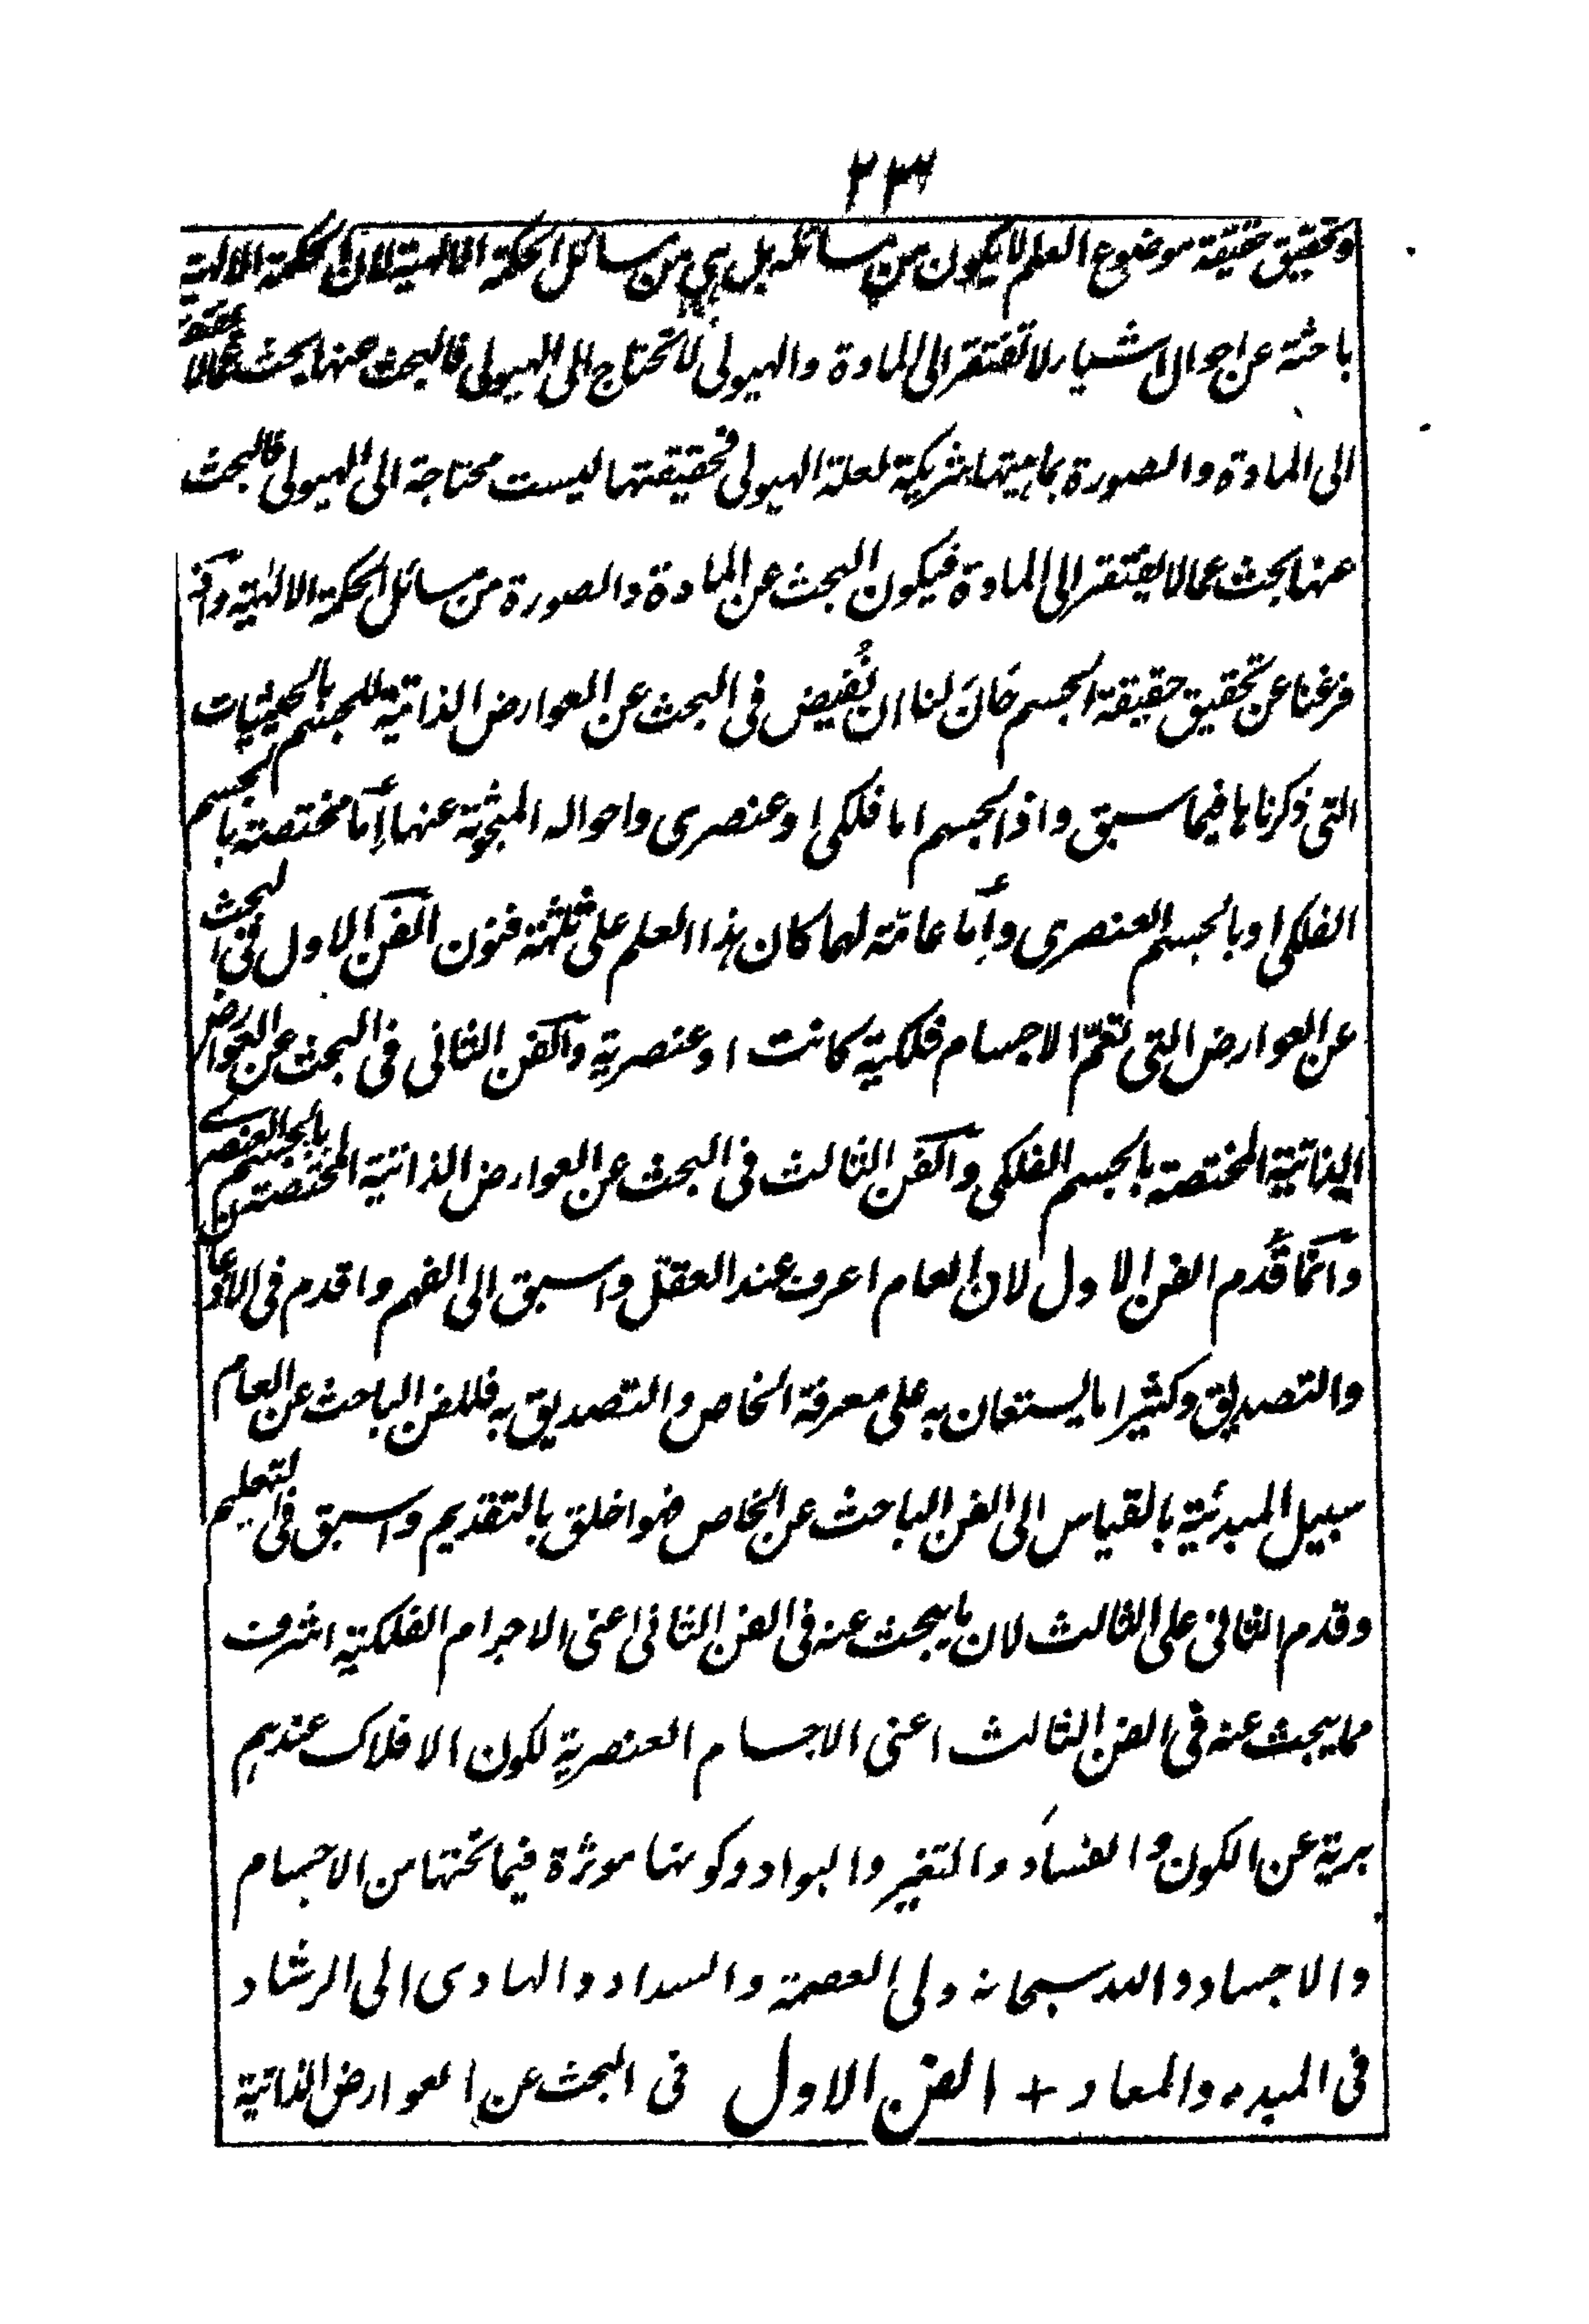 ٢٣٤
وتحقيق حقيقة موضوع العلم لا يكون من مسائله بل هي من مسائل الحكمة الالهية لان الحكمة الالهية
باحثة عن احوال اشياء لا تفتقر الى المادة والهيولى لا تحتاج الى الهيولى فالبحث عنها بحث عمالا يفتقر
الى المادة والصورة بماهيتها شريكة لعلة الهيولى فحقيقتها ليست محتاجة الى الهيولى فالبحث
عنها بحث عمالا يفتقر الى المادة فيكون البحث عن المادة والصورة من مسائل الحكمة الالهية واذ
فرغنا عن تحقيق حقيقة الجسم حَانَ لنا ان نُفيض في البحث عن العوارض الذاتية للجسم بالحيثيات
التى ذكرناها فيما سبق واذ الجسم اما فلكى او عنصرى واحواله المبحوثة عنها إمّا مختصة بالجسم
الفلكى او بالجسم العنصرى وإما عامّة لهما كان هذا العلم على ثلثة فنون الفن الاول فى البحث
عن العوارض التى تعمّ الاجسام فلكية كانت او عنصرية والفن الثانى فى البحث عن العوارض
الذاتية المختصة بالجسم الفلكى والفن الثالث فى البحث عن العوارض الذاتية المختصة بالجسم العنصرے
وانما قُدم الفن الاول لان العام اعرف عند العقل واسبق الى الفهم واقدم فى الاذعان
والتصديق وكثيرا ما يستعان به على معرفة الخاص والتصديق به فللفن الباحث عن العام
سبيل المبدئية بالقياس الى الفن الباحث عن الخاص فهو اخلق بالتقديم واسبق فى التعليم
وقدم الثانى على الثالث لان ما يبحث عنه فى الفن الثانى اعنى الاجرام الفلكية اشرف
مما يبحث عنه فى الفن الثالث اعنى الاجسام العنصرية لكون الافلاك عندهم
برية عن الكون والفساد والتغير والبواد وكونها موثرة فيما تحتها من الاجسام
والاجساد والله سبحانه ولى العصمة والسداد والهادى الى الرشاد
فى المبدء والمعاد + الفن الاول فى البحث عن العوارض الذاتية